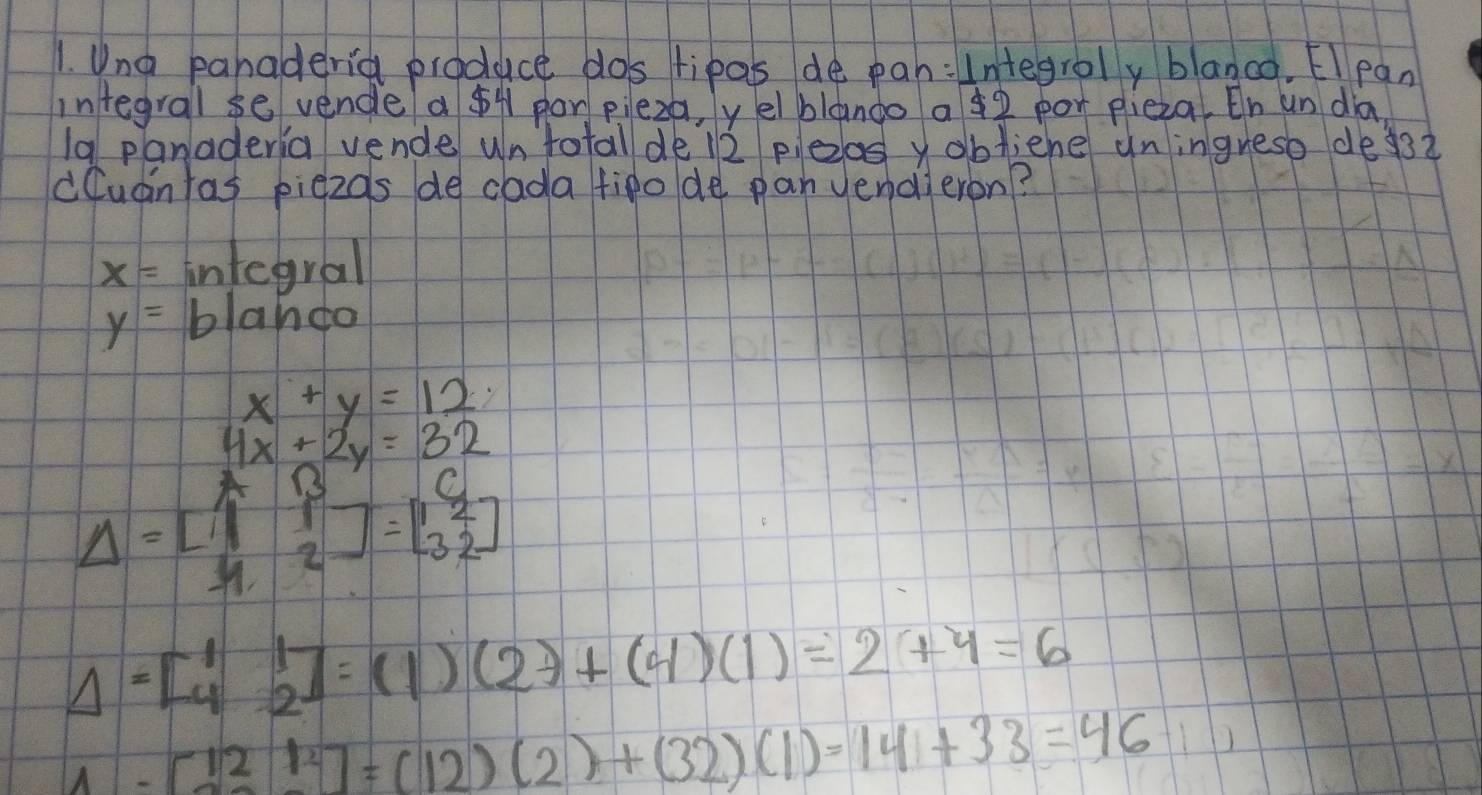 1. Una panadería produce dos tipos de pan: Integral y blanco. El pan
integral se vende a $4 por pieza, y el blanco a $2 por pieza. En un día,
la panadería vende un total de 12 piezas y obtiene un ingreso de $32
¿Cuántas piezas de cada tipo de pan vendieron?
x = integral
y = blanco
x + y = 12
4x + 2y = 32
A B C
Δ = [1 1] = [12]
4 2 32
Δ = [1 1] = (1)(2) + (4)(1) = 2 + 4 = 6
4 2
[12 1] = (12)(2) + (32)(1) = 14 + 33 = 46